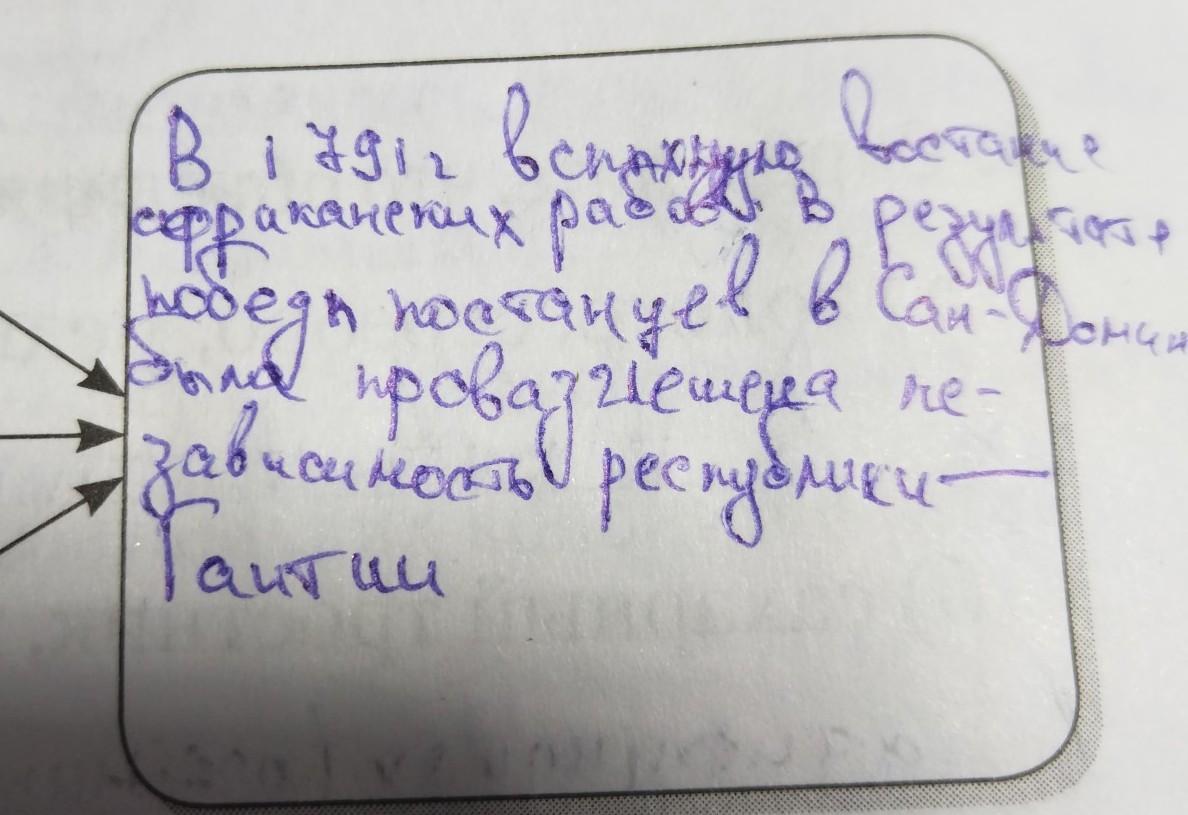 В 1791г вспыхнуло востание
африканских рабов. В результате
победы постанцев в Сан-Домин
была провазглешена не-
зависимость республики—
Гаитии